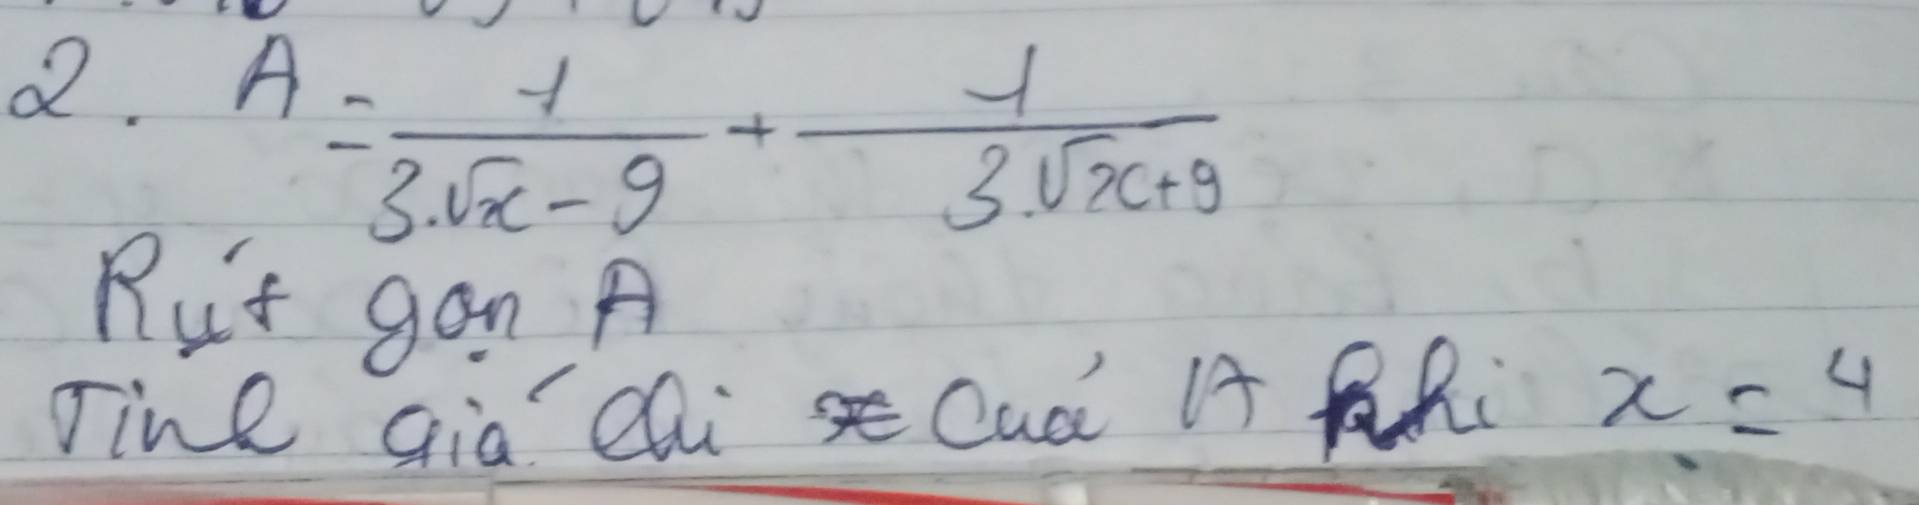 2. A = 1/(3.√x - 9) + 1/(3.√x+9)
Rút gọn A
Tính giá chi của A khi x = 4